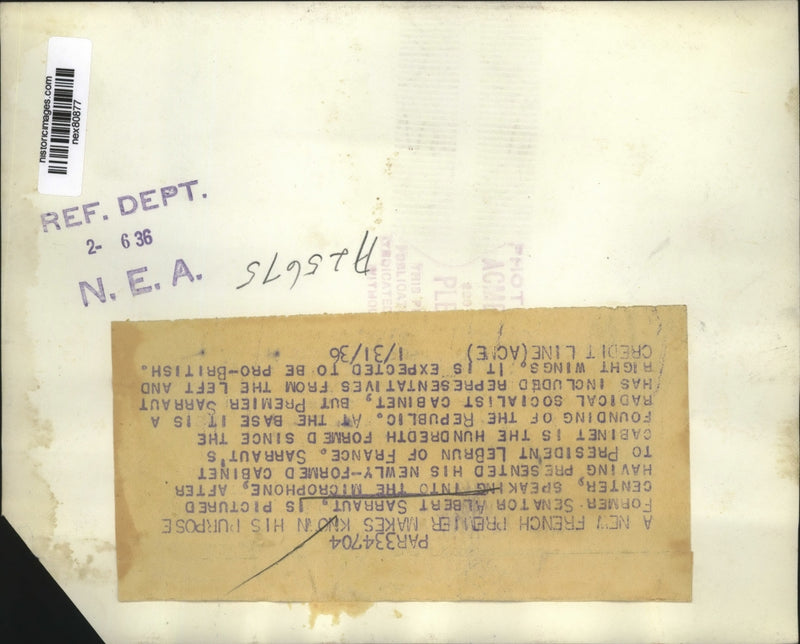 historicimages.com
nex80877
REF. DEPT.
2- 6 36
N. E. A.
A25675
PHOT
ACME
PLE
THIS P
PAR334704
A NEW FRENCH PREMIER MAKES KNOWN HIS PURPOSE
FORMER SENATOR ALBERT SARRAUT, IS PICTURED
CENTER, SPEAKING INTO THE MICROPHONE, AFTER
HAVING PRESENTED HIS NEWLY-FORMED CABINET
TO PRESIDENT LEBRUN OF FRANCE. SARRAUT'S
CABINET IS THE HUNDREDTH FORMED SINCE THE
FOUNDING OF THE REPUBLIC. AT THE BASE IT IS A
RADICAL SOCIALIST CABINET, BUT PREMIER SARRAUT
HAS INCLUDED REPRESENTATIVES FROM THE LEFT AND
RIGHT WINGS. IT IS EXPECTED TO BE PRO-BRITISH.
CREDIT LINE(ACME) 1/31/36